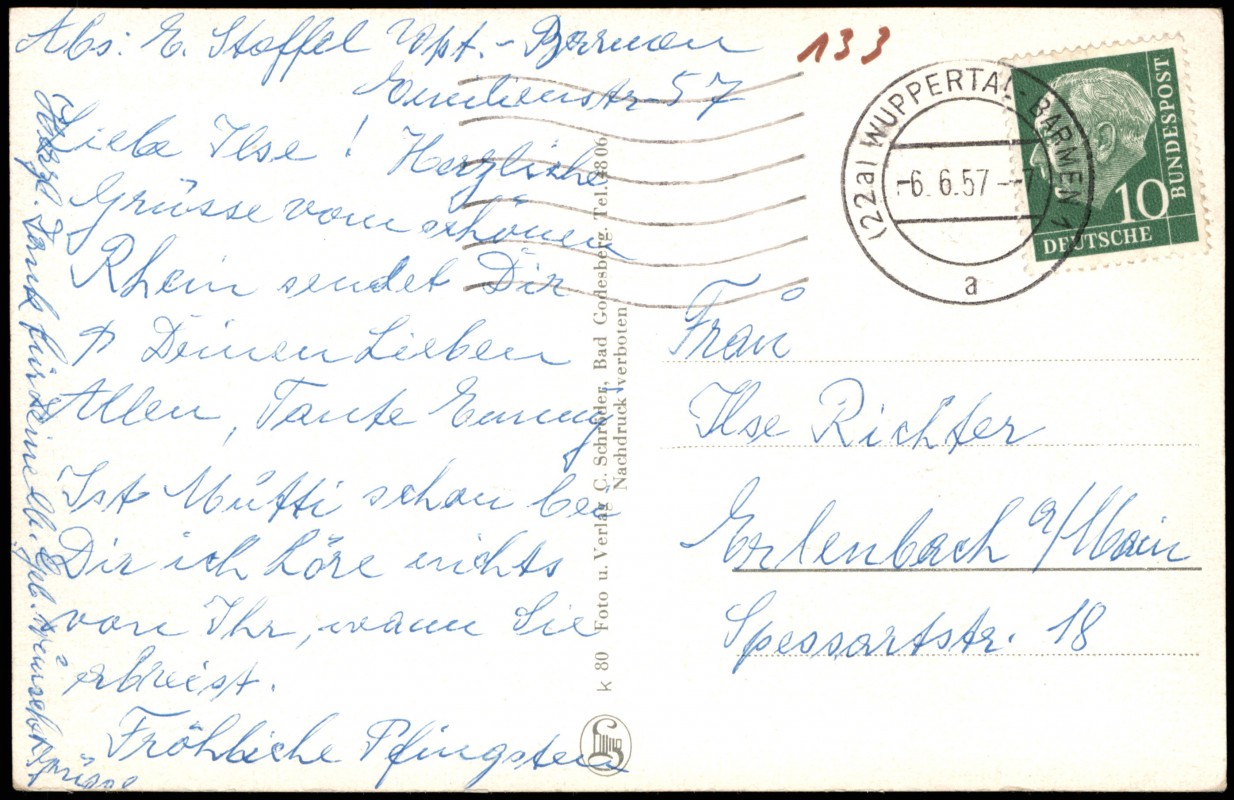 Abs: E. Stoffel Wpt. - Barmen
Emilienstr 57
Liebe Ilse! Herzliche
Grüsse vom schönen
Rhein sendet Dir
Deinen Lieben
Allen, Tante Emmy!
Ist Mutti schon bei
Dir ich höre nichts
von Ihr, wann Sie
abreist.
Fröhliche Pfingsten
Herzl. Dank für Deine lb. Geb. Wünsche
Grüsse
k 80 Foto u. Verlag C. Schröder, Bad Godesberg. Tel. 4806
Nachdruck verboten
133
(22a) WUPPERTAL-BARMEN 1
-6.6.57--7
a
10
DEUTSCHE
BUNDESPOST
Frau
Ilse Richter
Erlenbach a/Main
Spessartstr. 18